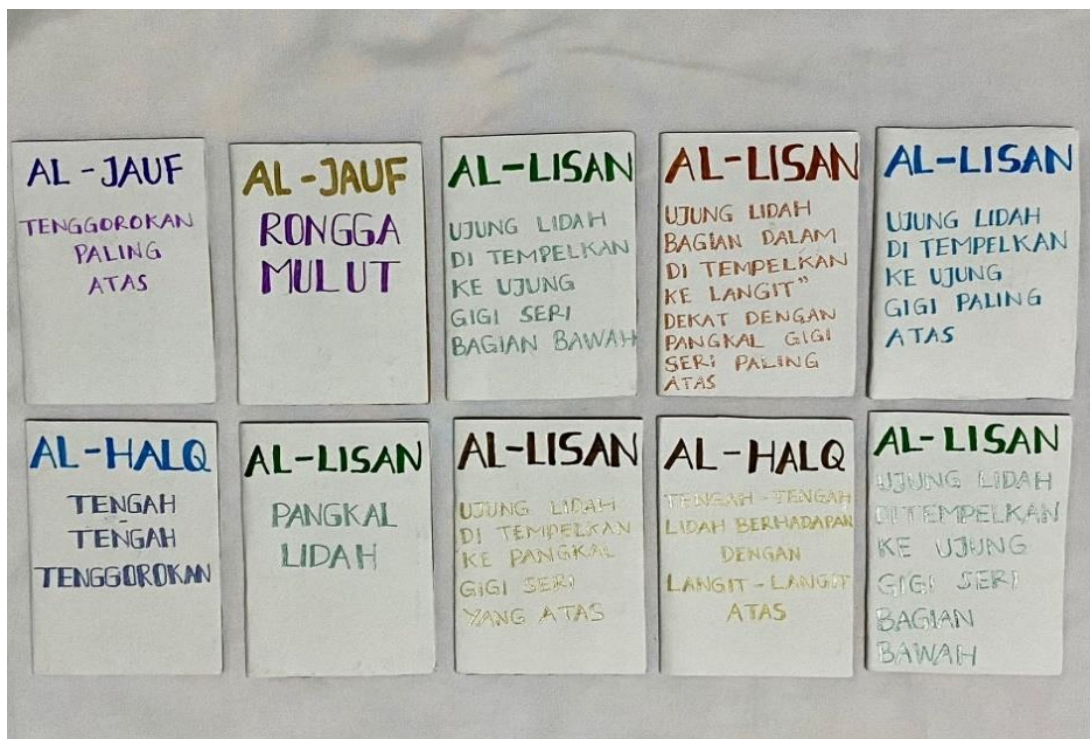 AL-JAUF
TENGGOROKAN
PALING
ATAS
AL-JAUF
RONGGA
MULUT
AL-LISAN
UJUNG LIDAH
DI TEMPELKAN
KE UJUNG
GIGI SERI
BAGIAN BAWAH
AL-LISAN
UJUNG LIDAH
BAGIAN DALAM
DI TEMPELKAN
KE LANGIT"
DEKAT DENGAN
PANGKAL GIGI
SERI PALING
ATAS
AL-LISAN
UJUNG LIDAH
DI TEMPELKAN
KE UJUNG
GIGI PALING
ATAS
AL-HALQ
TENGAH
-
TENGAH
TENGGOROKAN
AL-LISAN
PANGKAL
LIDAH
AL-LISAN
UJUNG LIDAH
DI TEMPELKAN
KE PANGKAL
GIGI SERI
YANG ATAS
AL-HALQ
TENGAH-TENGAH
LIDAH BERHADAPAN
DENGAN
LANGIT-LANGIT
ATAS
AL-LISAN
UJUNG LIDAH
DITEMPELKAN
KE UJUNG
GIGI SERI
BAGIAN
BAWAH